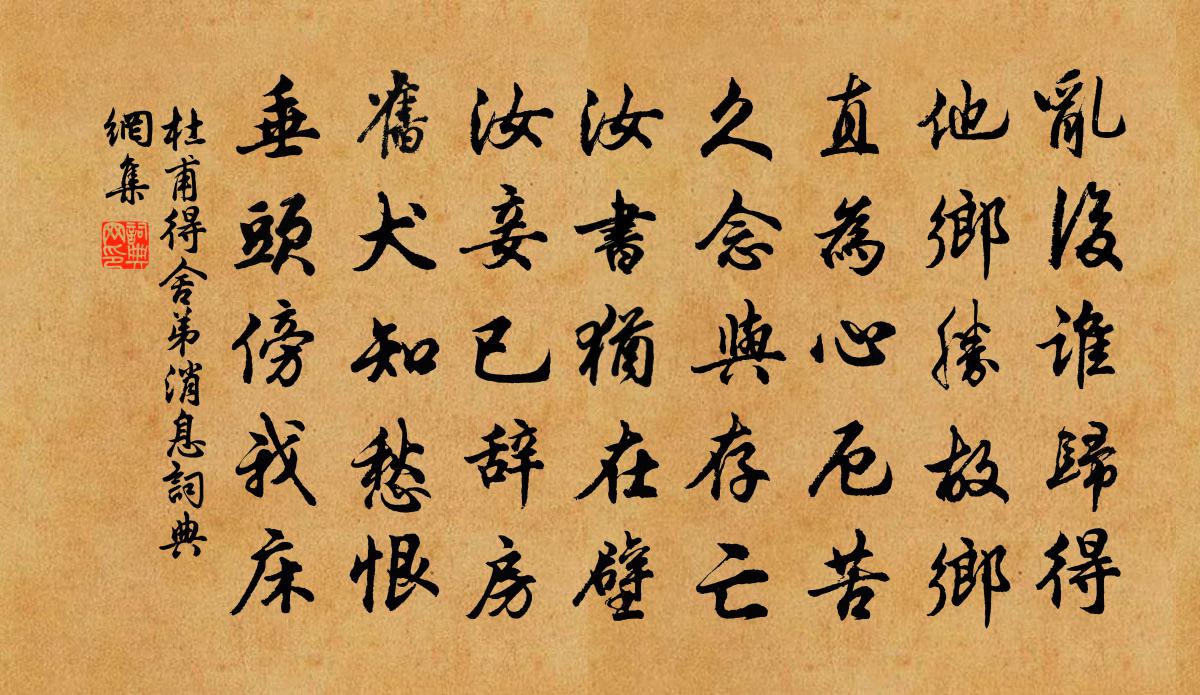 亂後誰歸得
他鄉勝故鄉
直為心厄苦
久念與存亡
汝書猶在壁
汝妾已辞房
舊犬知愁恨
垂頭傍我床
杜甫得舍弟消息詞典
網集
詞典網印